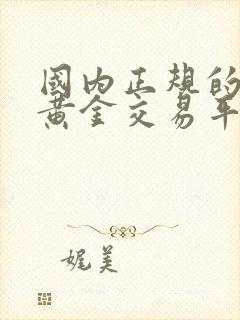 國内正規的
黄金交易平
娓美